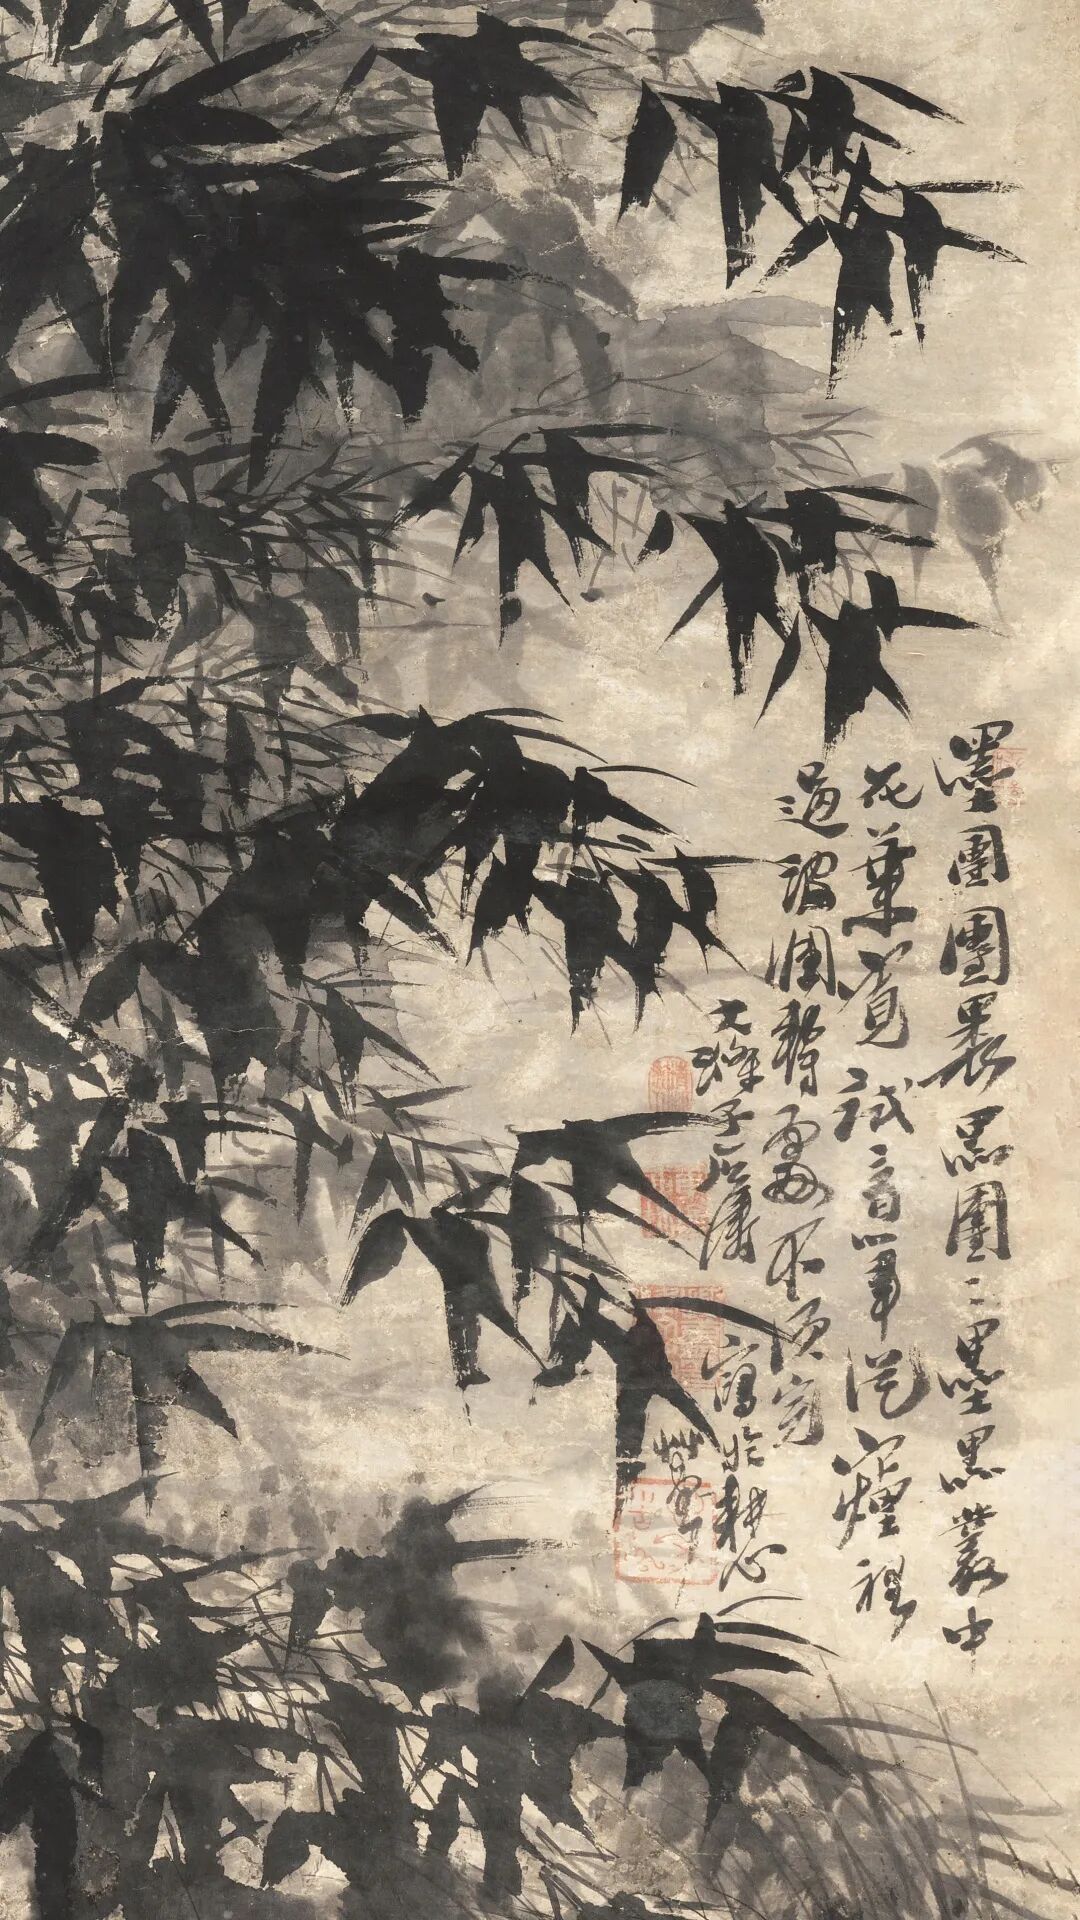 墨團團裏黑團〻墨黑叢中
花葉寬試看筆從煙裡
過波瀾轉處不須完
大滌子石濤寫於耕心
草堂